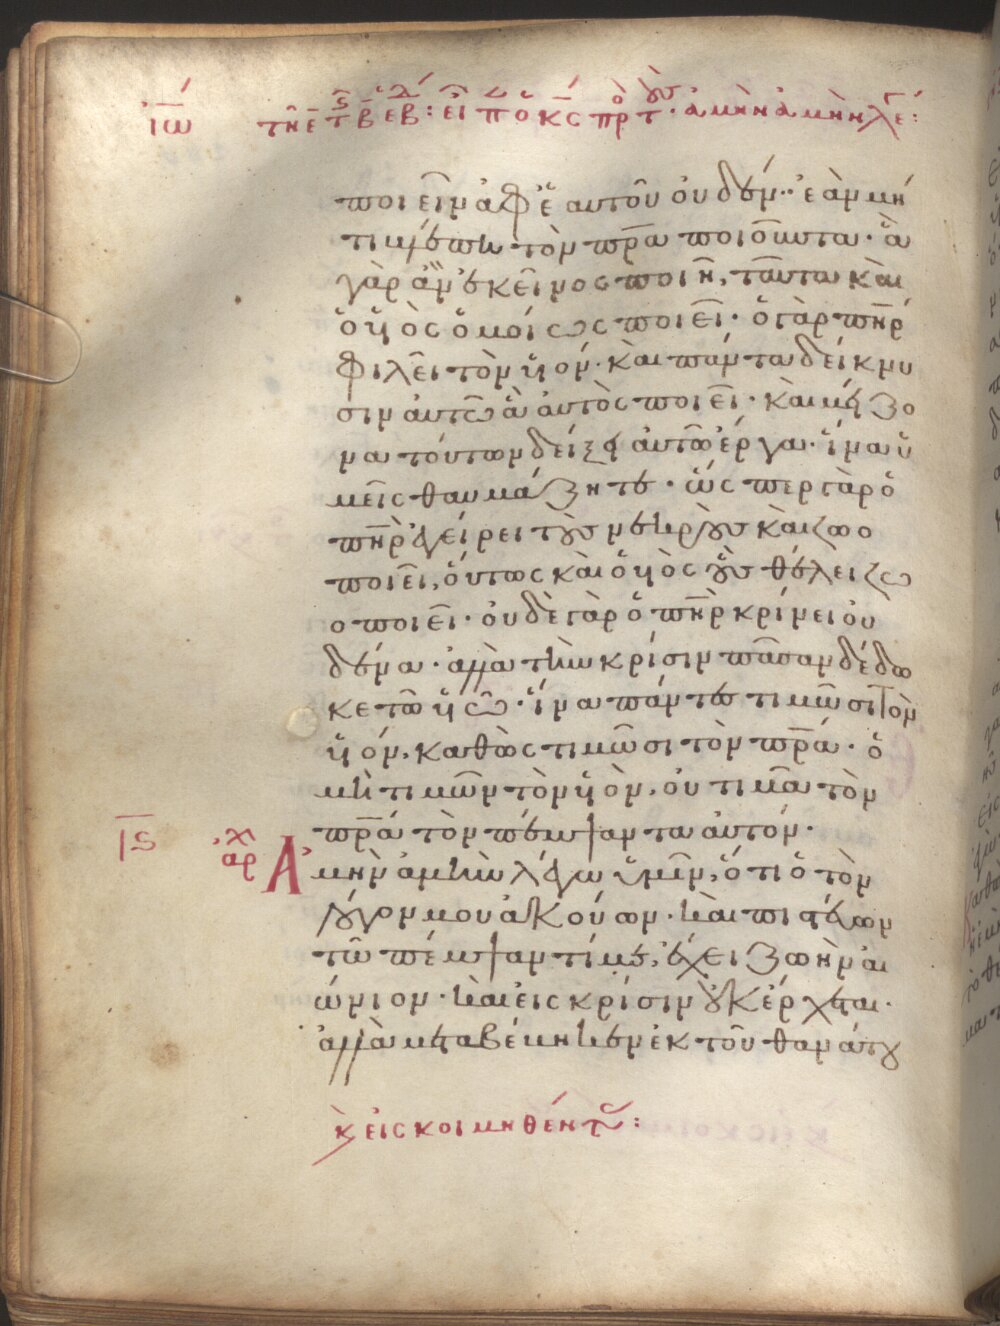 ποιεῖν ἀφ ἑαυτοῦ οὐδέν· ἐὰν μή
τι βλέπη τὸν πρα ποιοῦντα· ἃ
γὰρ ἂν ἐκεῖνος ποιῆ, ταῦτα καὶ
ὁ υἱὸς ὁμοίως ποιεῖ· ὁ γὰρ πηρ
φιλεῖ τὸν υἱόν· καὶ πάντα δείκνυ
σιν αὐτῶ ἃ αὐτὸς ποιεῖ· καὶ μείζο
να τούτων δείξει αὐτῶ ἔργα· ἵνα ὑ
μεῖς θαυμάζητε· ὥσπερ γὰρ ὁ
πηρ ἐγείρει τοὺς νεκροὺς καὶ ζωο
ποιεῖ, οὕτως καὶ ὁ υἱὸς οὓς θέλει ζω
οποιεῖ· οὐδὲ γὰρ ὁ πηρ κρίνει οὐ
δένα· ἀλλὰ τὴν κρίσιν πᾶσαν δέδω
κε τῶ υἱῶ· ἵνα πάντες τιμῶσι τὸν
υἱόν, καθὼς τιμῶσι τὸν πρα· ὁ
μὴ τιμῶν τὸν υἱὸν, οὐ τιμᾶ τὸν
πρα τὸν πέμψαντα αὐτόν·
ις αρχ Ἀμὴν ἀμὴν λέγω ὑμῖν, ὅτι ὁ τὸν
λόγον μου ἀκούων· καὶ πιστεύων
τῶ πέμψαντί με, ἔχει ζωὴν αἰ
ώνιον· καὶ εἰς κρίσιν οὐκ ἔρχεται·
ἀλλὰ μεταβέβηκεν ἐκ τοῦ θανάτου
κ εἰς κοιμηθέντ: